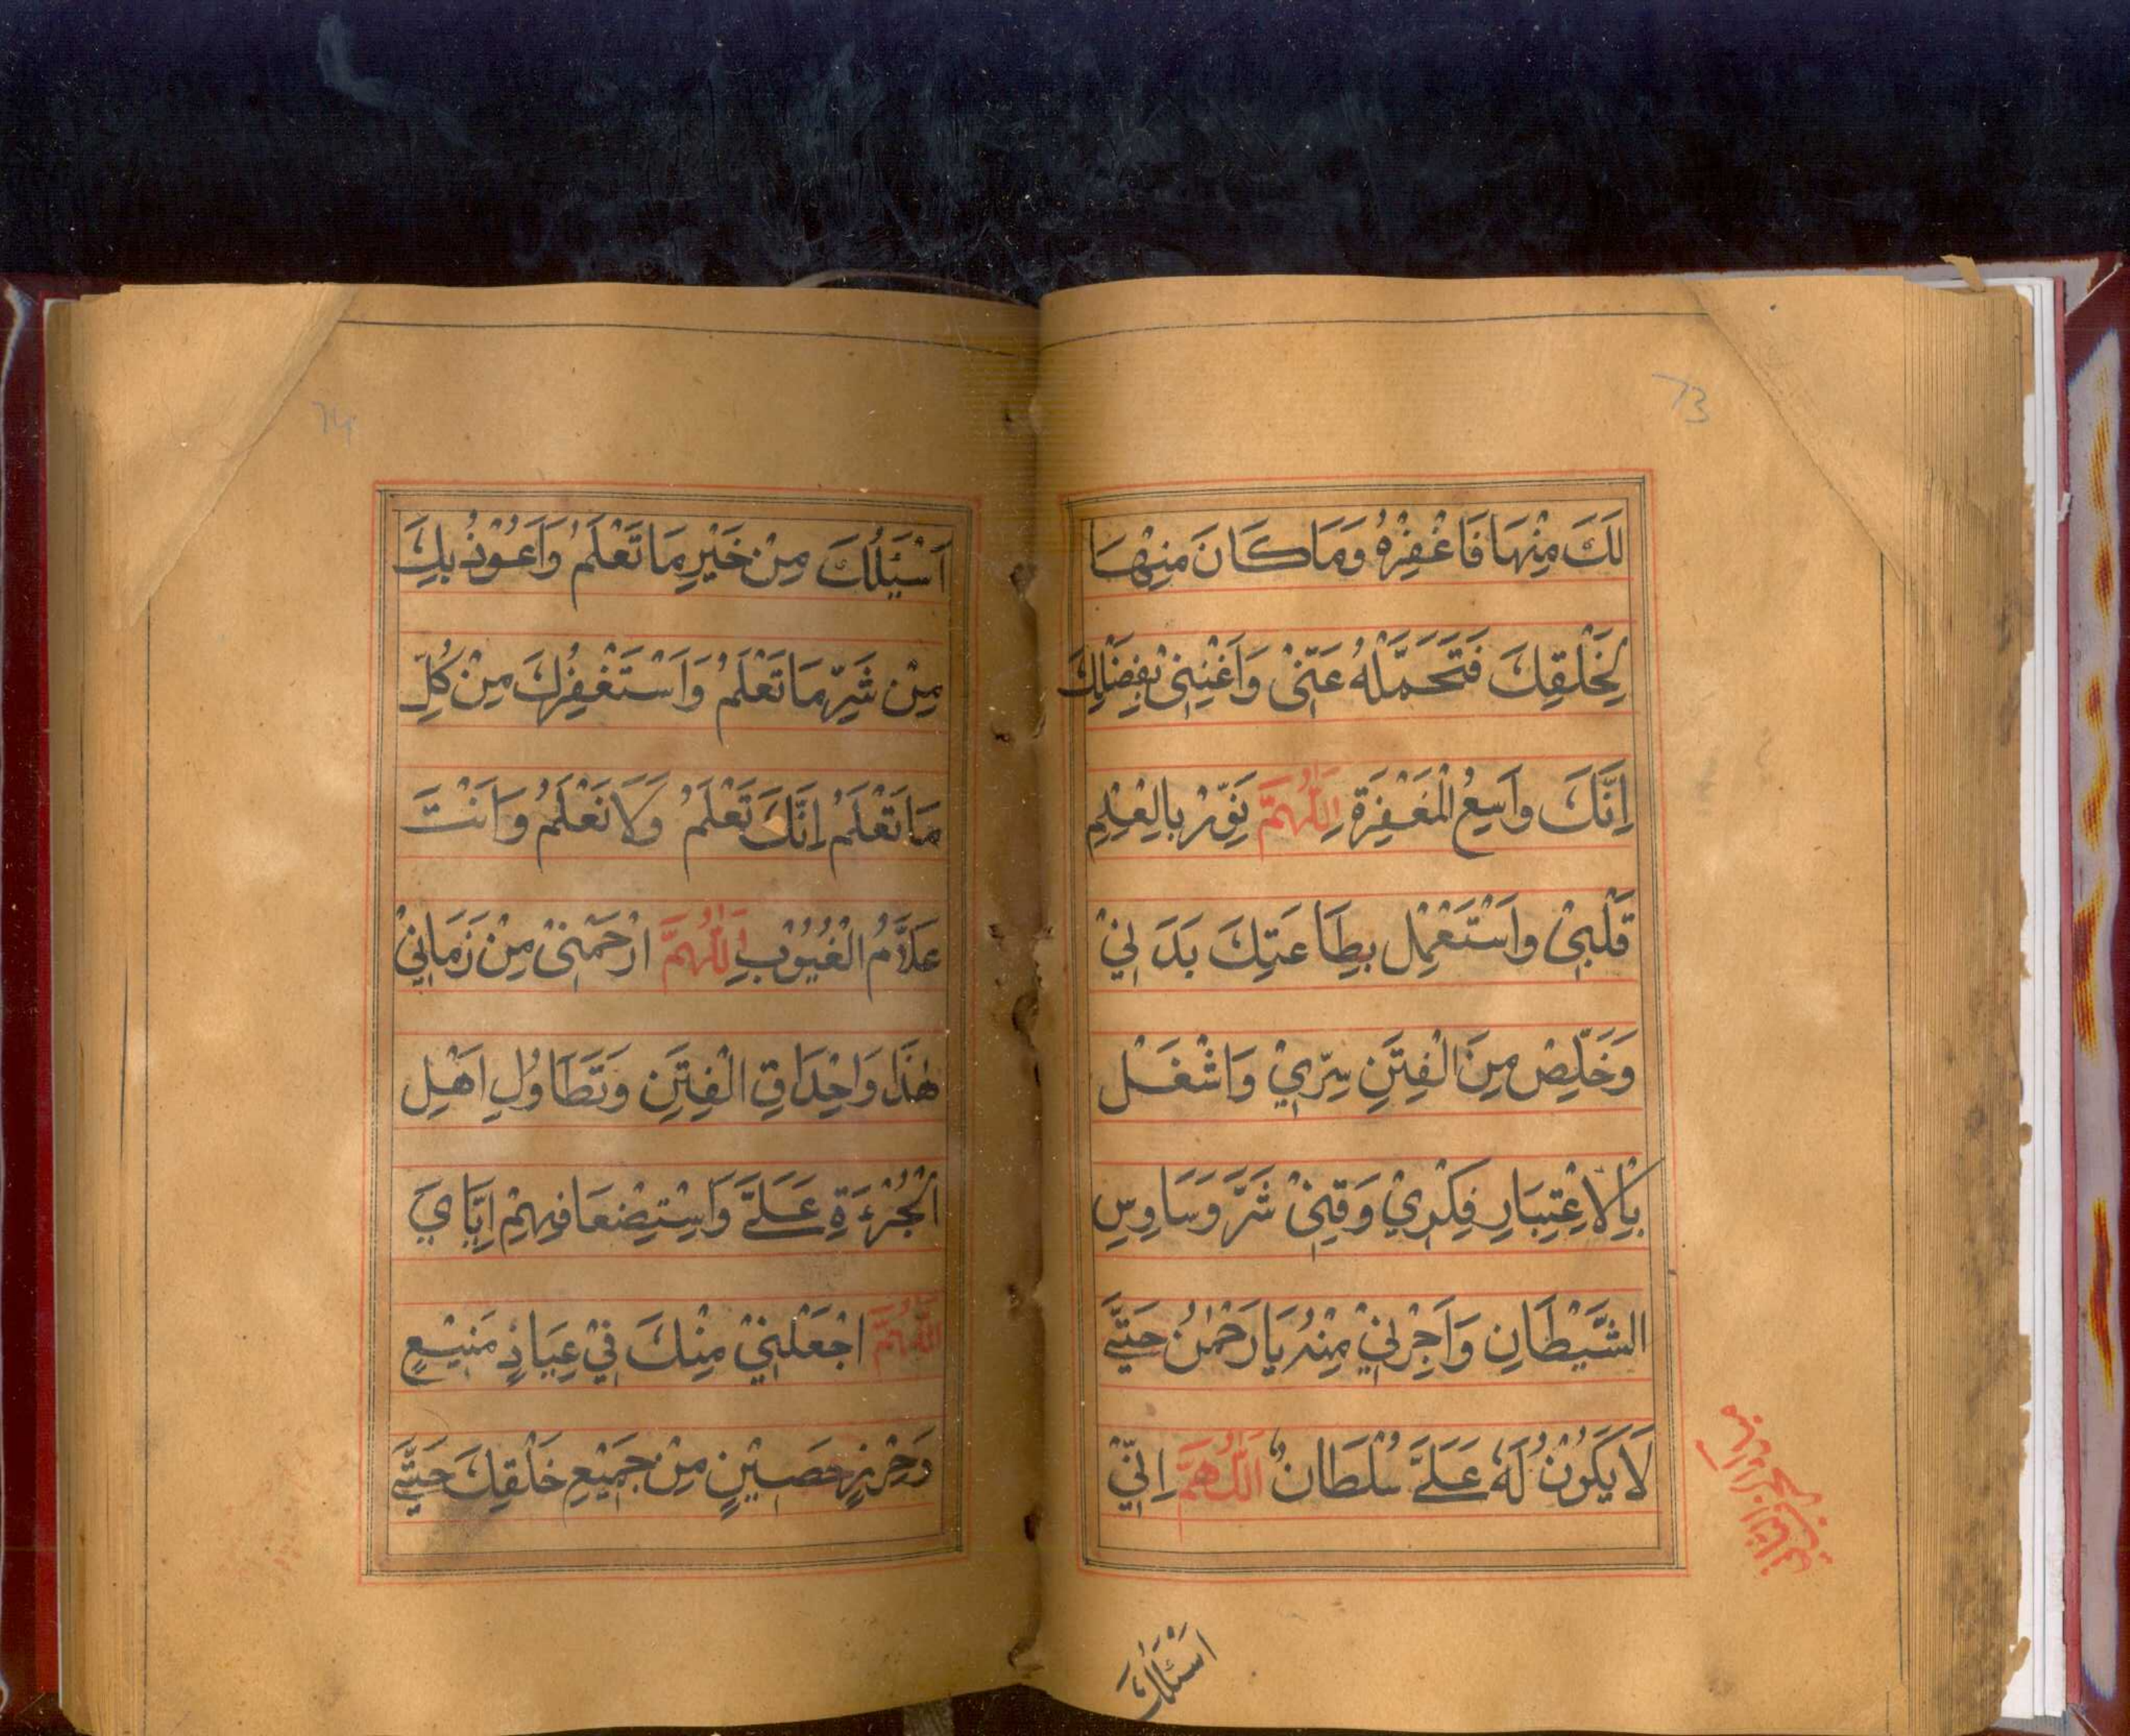 73
لَكَ مِنْهَا فَاغْفِرْهُ وَمَا كَانَ مِنْهَا
لِخَلْقِكَ فَتَحَمَّلْهُ عَنِّيْ وَاَغْنِنِيْ بِفَضْلِكَ
اِنَّكَ وَاسِعُ الْمَغْفِرَةِ اَللّٰهُمَّ نَوِّرْ بِالْعِلْمِ
قَلْبِيْ وَاسْتَعْمِلْ بِطَاعَتِكَ بَدَنِيْ
وَخَلِّصْ مِنَ الْفِتَنِ سِرِّيْ وَاشْغَلْ
بِالْاِعْتِبَارِ فِكْرِيْ وَقِنِيْ شَرَّ وَسَاوِسِ
الشَّيْطَانِ وَاَجِرْنِيْ مِنْهُ يَا رَحْمٰنُ حَتّٰى
لَا يَكُوْنُ لَهٗ عَلَيَّ سُلْطَانٌ اَللّٰهُمَّ اِنِّيْ
اَسْئَلُكَ
74
اَسْئَلُكَ مِنْ خَيْرِ مَا تَعْلَمُ وَاَعُوْذُ بِكَ
مِنْ شَرِّ مَا تَعْلَمُ وَاَسْتَغْفِرُكَ مِنْ كُلِّ
مَا تَعْلَمُ اِنَّكَ تَعْلَمُ وَلَا نَعْلَمُ وَاَنْتَ
عَلَّامُ الْغُيُوْبِ اَللّٰهُمَّ ارْحَمْنِيْ مِنْ زَمَانِيْ
هٰذَا وَاِحْدَاقِ الْفِتَنِ وَتَطَاوُلِ اَهْلِ
الْجُرْءَةِ عَلَيَّ وَاسْتِضْعَافِهِمْ اِيَّايَ
اَللّٰهُمَّ اجْعَلْنِيْ مِنْكَ فِيْ عِيَاذٍ مَنِيْعٍ
وَحِرْزٍ حَصِيْنٍ مِنْ جَمِيْعِ خَلْقِكَ حَتّٰى